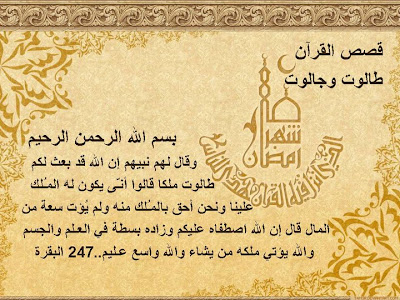 قصص القرآن
طالوت وجالوت
شهر
رمضان
الذي أنزل فيه القرآن هدى للناس
بسم الله الرحمن الرحيم
وقال لهم نبيهم إن الله قد بعث لكم
طالوت ملكا قالوا أنّى يكون له المـُلك
علينا ونحن أحق بالمـُلك منه ولم يُؤت سعة من
المال قال إن الله اصطفاه عليكم وزاده بسطة في العـلم والجسم
والله يؤتي ملكه من يشاء والله واسع عـليم..247 البقرة